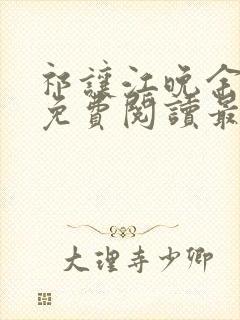 祁讓江晚余
免費閱讀最
大理寺少卿